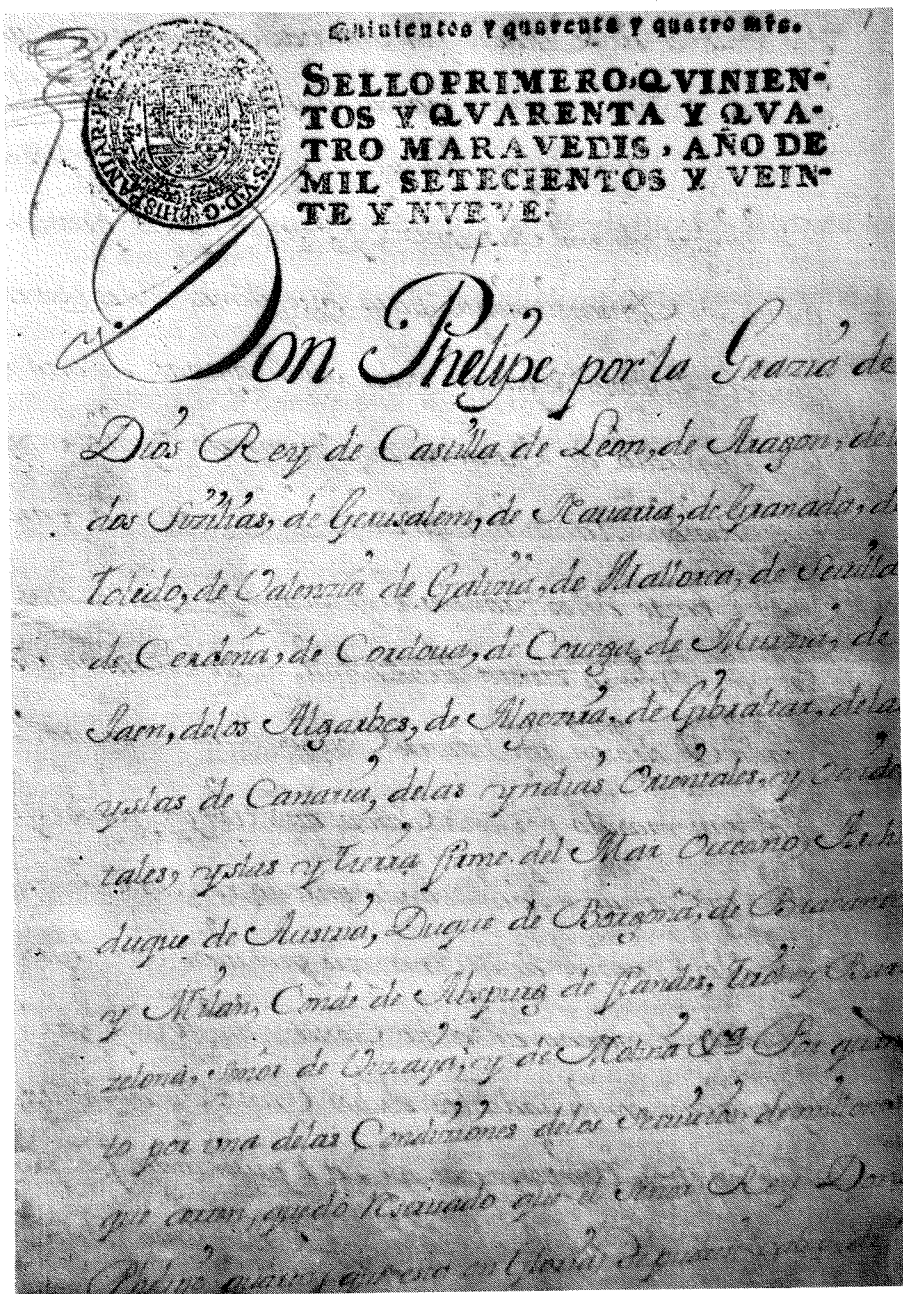 Quinientos y quarenta y quatro mrs.
SELLO PRIMERO, QVINIEN-
TOS Y QVARENTA Y QVA-
TRO MARAVEDIS, AÑO DE
MIL SETECIENTOS Y VEIN-
TE Y NVEVE.
PHILIPPVS V D G HISPANIAR REX
Don Phelipe por la Grazia de
Dios Rey de Castilla, de Leon, de Aragon, de
dos Sizilias, de Gerusalem, de Nauarra, de Granada, d
Toledo, de Valenzia de Galizia, de Mallorca, de Seuilla
de Cerdeña, de Cordoua, de Corzega, de Murzia, de
Jaen, delos Algarbes, de Algezira, de Gibraltar, dela
yslas de Canaria, delas yndias Orientales, y Ocide
tales, yslas y tierra firme del Mar Occeano, Archi
duque de Austria, Duque de Borgoña, de Brabante
y Milan, Conde de Abspurg de flandes, tirol y Bar
zelona, señor de Vizcaya, y de Molina &ª Por quan
to por una delas Condiziones delos seruizios de mill
que corren, quedó reseruado que el señor Rey Don
Phelipe quarto, que esta en Gloria